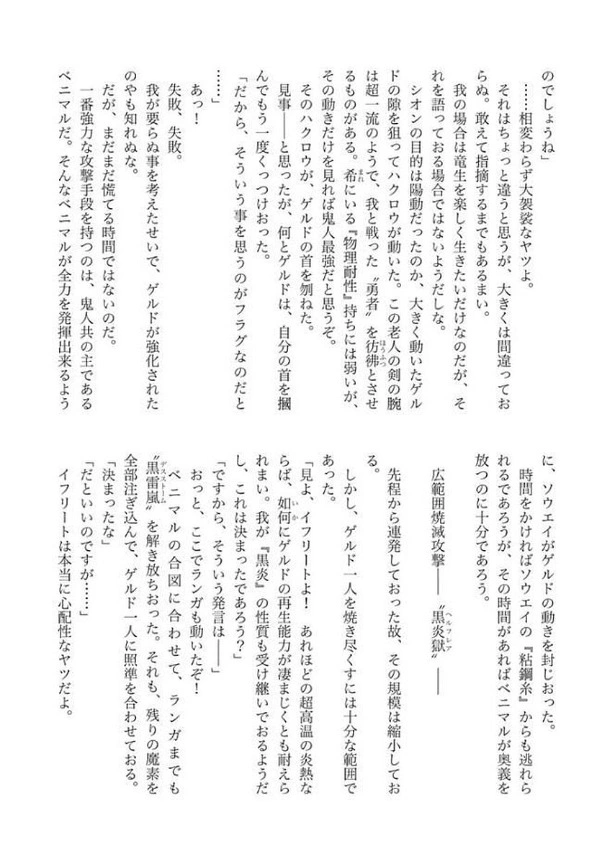 のでしょうね」
……相変わらず大袈裟なヤツよ。
それはちょっと違うと思うが、大きくは間違ってお
らぬ。敢えて指摘するまでもあるまい。
我の場合は竜生を楽しく生きたいだけなのだが、そ
れを語っておる場合ではないようだしな。
シオンの目的は陽動だったのか、大きく動いたゲル
ドの隙を狙ってハクロウが動いた。この老人の剣の腕
は超一流のようで、我と戦った〝勇者〟を彷彿とさせ
るものがある。希にいる『物理耐性』持ちには弱いが、
その動きだけを見れば鬼人最強だと思うぞ。
そのハクロウが、ゲルドの首を刎ねた。
見事――と思ったが、何とゲルドは、自分の首を摑
んでもう一度くっつけおった。
「だから、そういう事を思うのがフラグなのだと
……」
あっ！
失敗、失敗。
我が要らぬ事を考えたせいで、ゲルドが強化された
のやも知れぬな。
だが、まだまだ慌てる時間ではないのだ。
一番強力な攻撃手段を持つのは、鬼人共の主である
ベニマルだ。そんなベニマルが全力を発揮出来るよう
に、ソウエイがゲルドの動きを封じおった。
時間をかければソウエイの『粘鋼糸』からも逃れら
れるであろうが、その時間があればベニマルが奥義を
放つのに十分であろう。
広範囲焼滅攻撃――〝黒炎獄〟――
先程から連発しておった故、その規模は縮小してお
る。
しかし、ゲルド一人を焼き尽くすには十分な範囲で
あった。
「見よ、イフリートよ！　あれほどの超高温の炎熱な
らば、如何にゲルドの再生能力が凄まじくとも耐えら
れまい。我が『黒炎』の性質も受け継いでおるようだ
し、これは決まったであろう？」
「ですから、そういう発言は――」
おっと、ここでランガも動いたぞ！
ベニマルの合図に合わせて、ランガまでも
〝黒雷嵐〟を解き放ちおった。それも、残りの魔素を
全部注ぎ込んで、ゲルド一人に照準を合わせておる。
「決まったな」
「だといいのですが……」
イフリートは本当に心配性なヤツだよ。